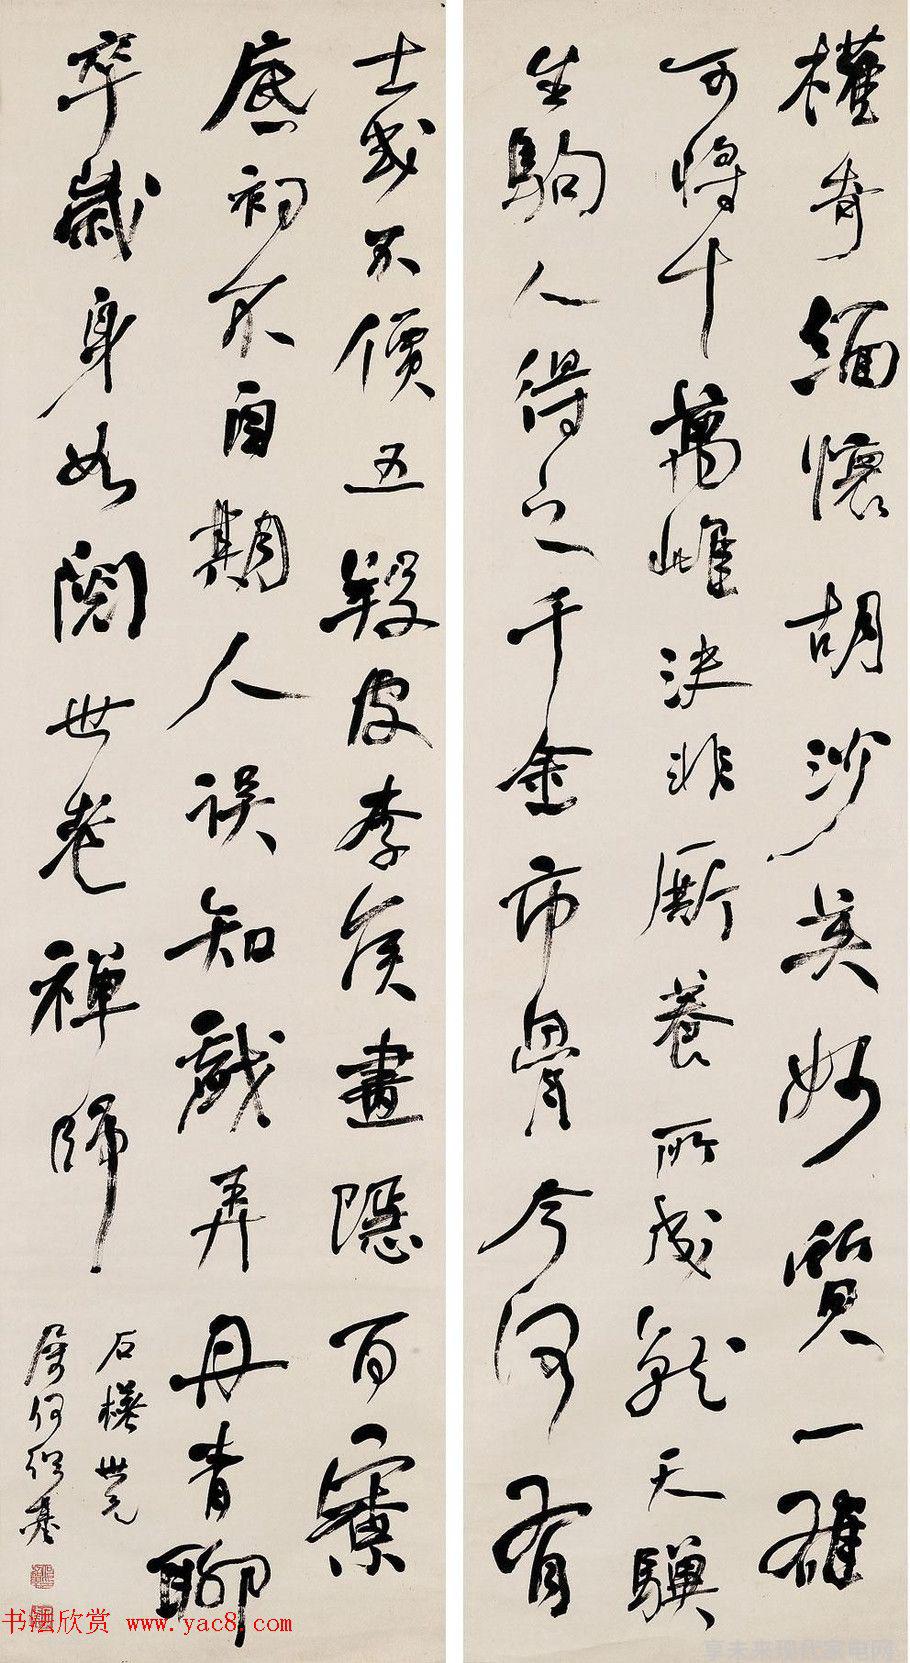 權奇緬懷胡沙英妙質一雄
可將十萬雌決非廝養所成就天驥
生駒人得之千金市骨今何有
士或不價五羖皮李侯畫隱百寮
底初不自期人誤知戲弄丹青聊
卒歲身如閱世老禪師
石樵世兄
屬何紹基
书法欣赏 www.yac8.com
享未来现代家电网